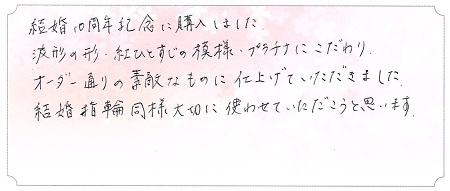 結婚10周年記念に購入しました.
波形の形・紅ひとすじの模様・プラチナにこだわり.
オーダー通りの素敵なものに仕上げていただきました.
結婚指輪同様大切に使わせていただこうと思います.